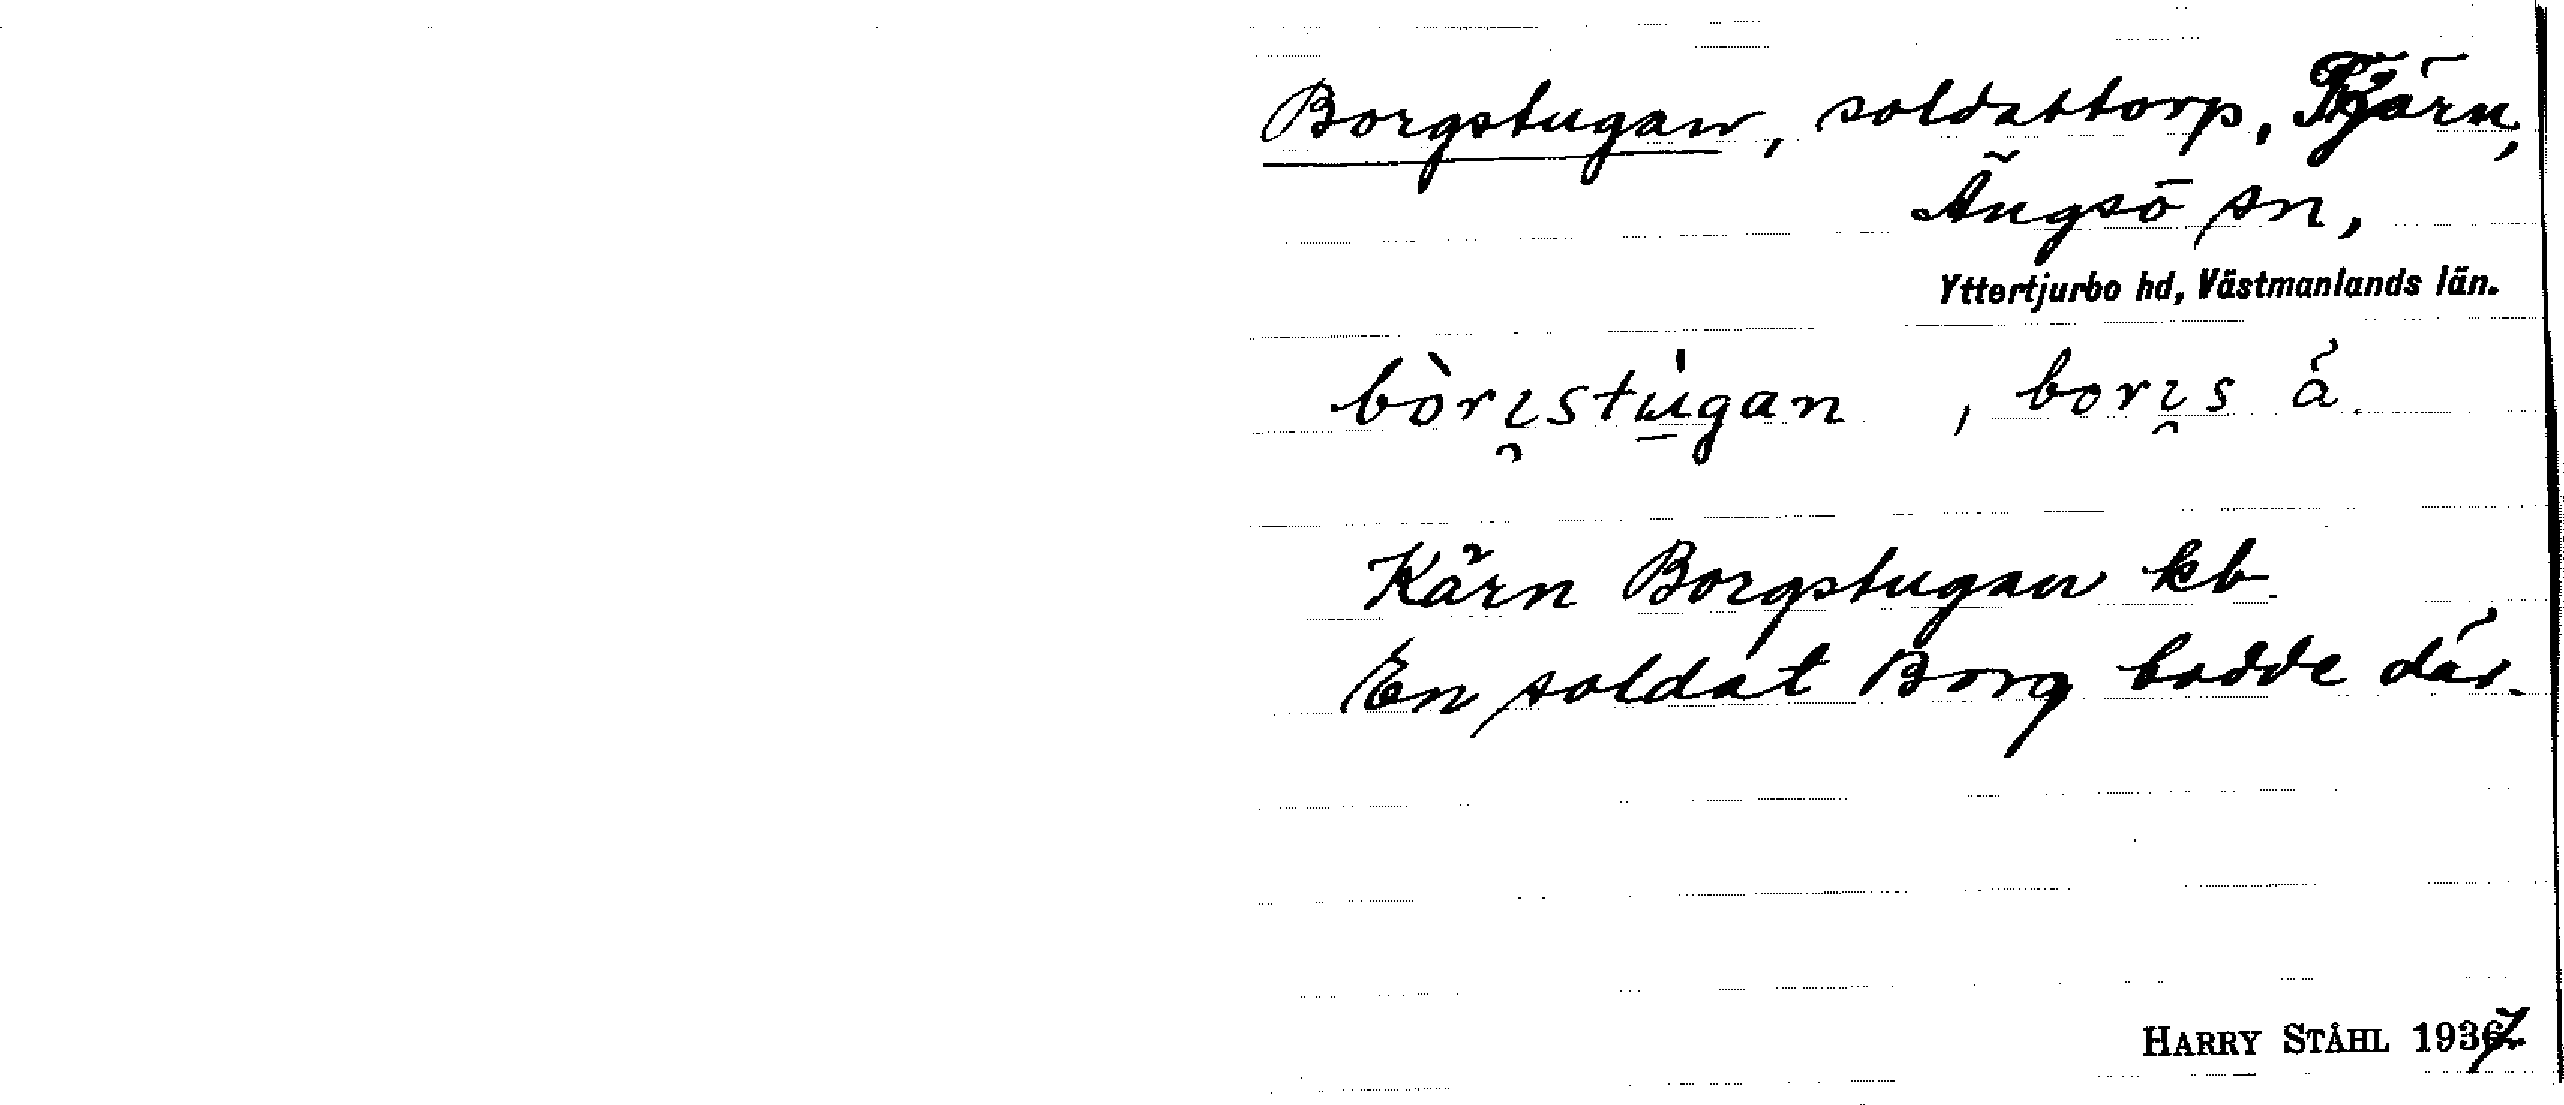 Borgstugan, soldattorp, Kärn,
Ängsö sn,
Yttertjurbo hd, Västmanlands län.
bòrı̯stu̠̍gan , borı̯s å
Kärn Borgstugan kb.
En soldat Borg bodde där.
HARRY STÅHL 1937.